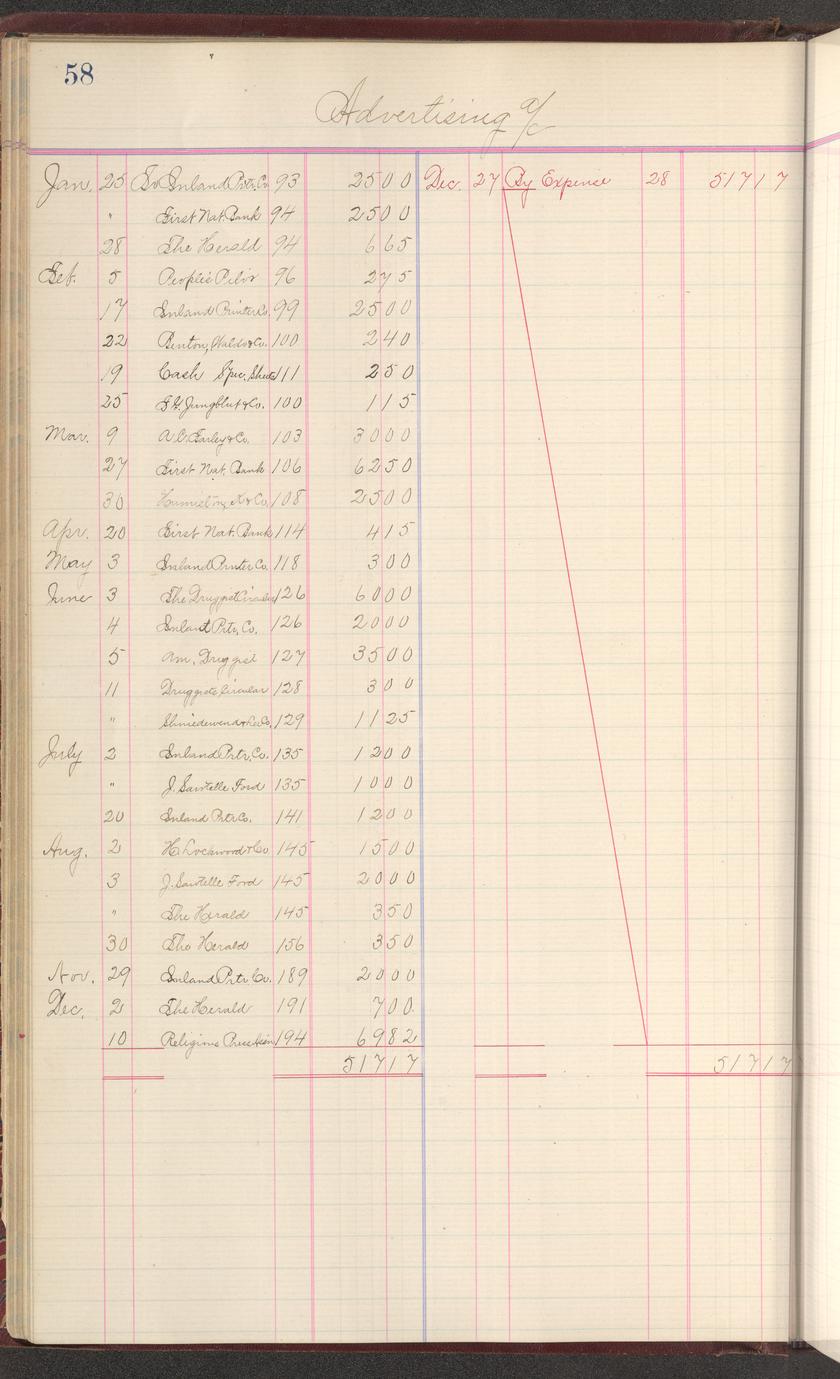 58
Advertising a/c
Jan. 25 To Inland Prtr. Co. 93 2500 Dec. 27 By Expense 28 51717
" First Nat. Bank 94 2500
28 The Herald 94 665
Feb. 5 People's Pilot 96 275
17 Inland Printer Co. 99 2500
22 Benton, Waldo & Co. 100 240
19 Cash Spec. 111 250
25 Jungblut & Co. 100 115
Mar. 9 A.C. Farley & Co. 103 3000
27 First Nat. Bank 106 6250
30 & Co. 108 2500
Apr. 20 First Nat. Bank 114 415
May 3 Inland Printer Co. 118 300
June 3 The Druggist Circular 126 6000
4 Inland Prtr. Co. 126 2000
5 Am. Druggist 127 3500
11 Druggists Circular 128 300
" 129 1125
July 2 Inland Prtr. Co. 135 1200
" J. Sawtelle Ford 135 1000
20 Inland Prtr Co. 141 1200
Aug. 2 H. Lockwood & Co 145 1500
3 J. Sawtelle Ford 145 2000
" The Herald 145 350
30 The Herald 156 350
Nov. 29 Inland Prtr. Co. 189 2000
Dec. 2 The Herald 191 700
10 Religious Press 194 6982
51717 51717